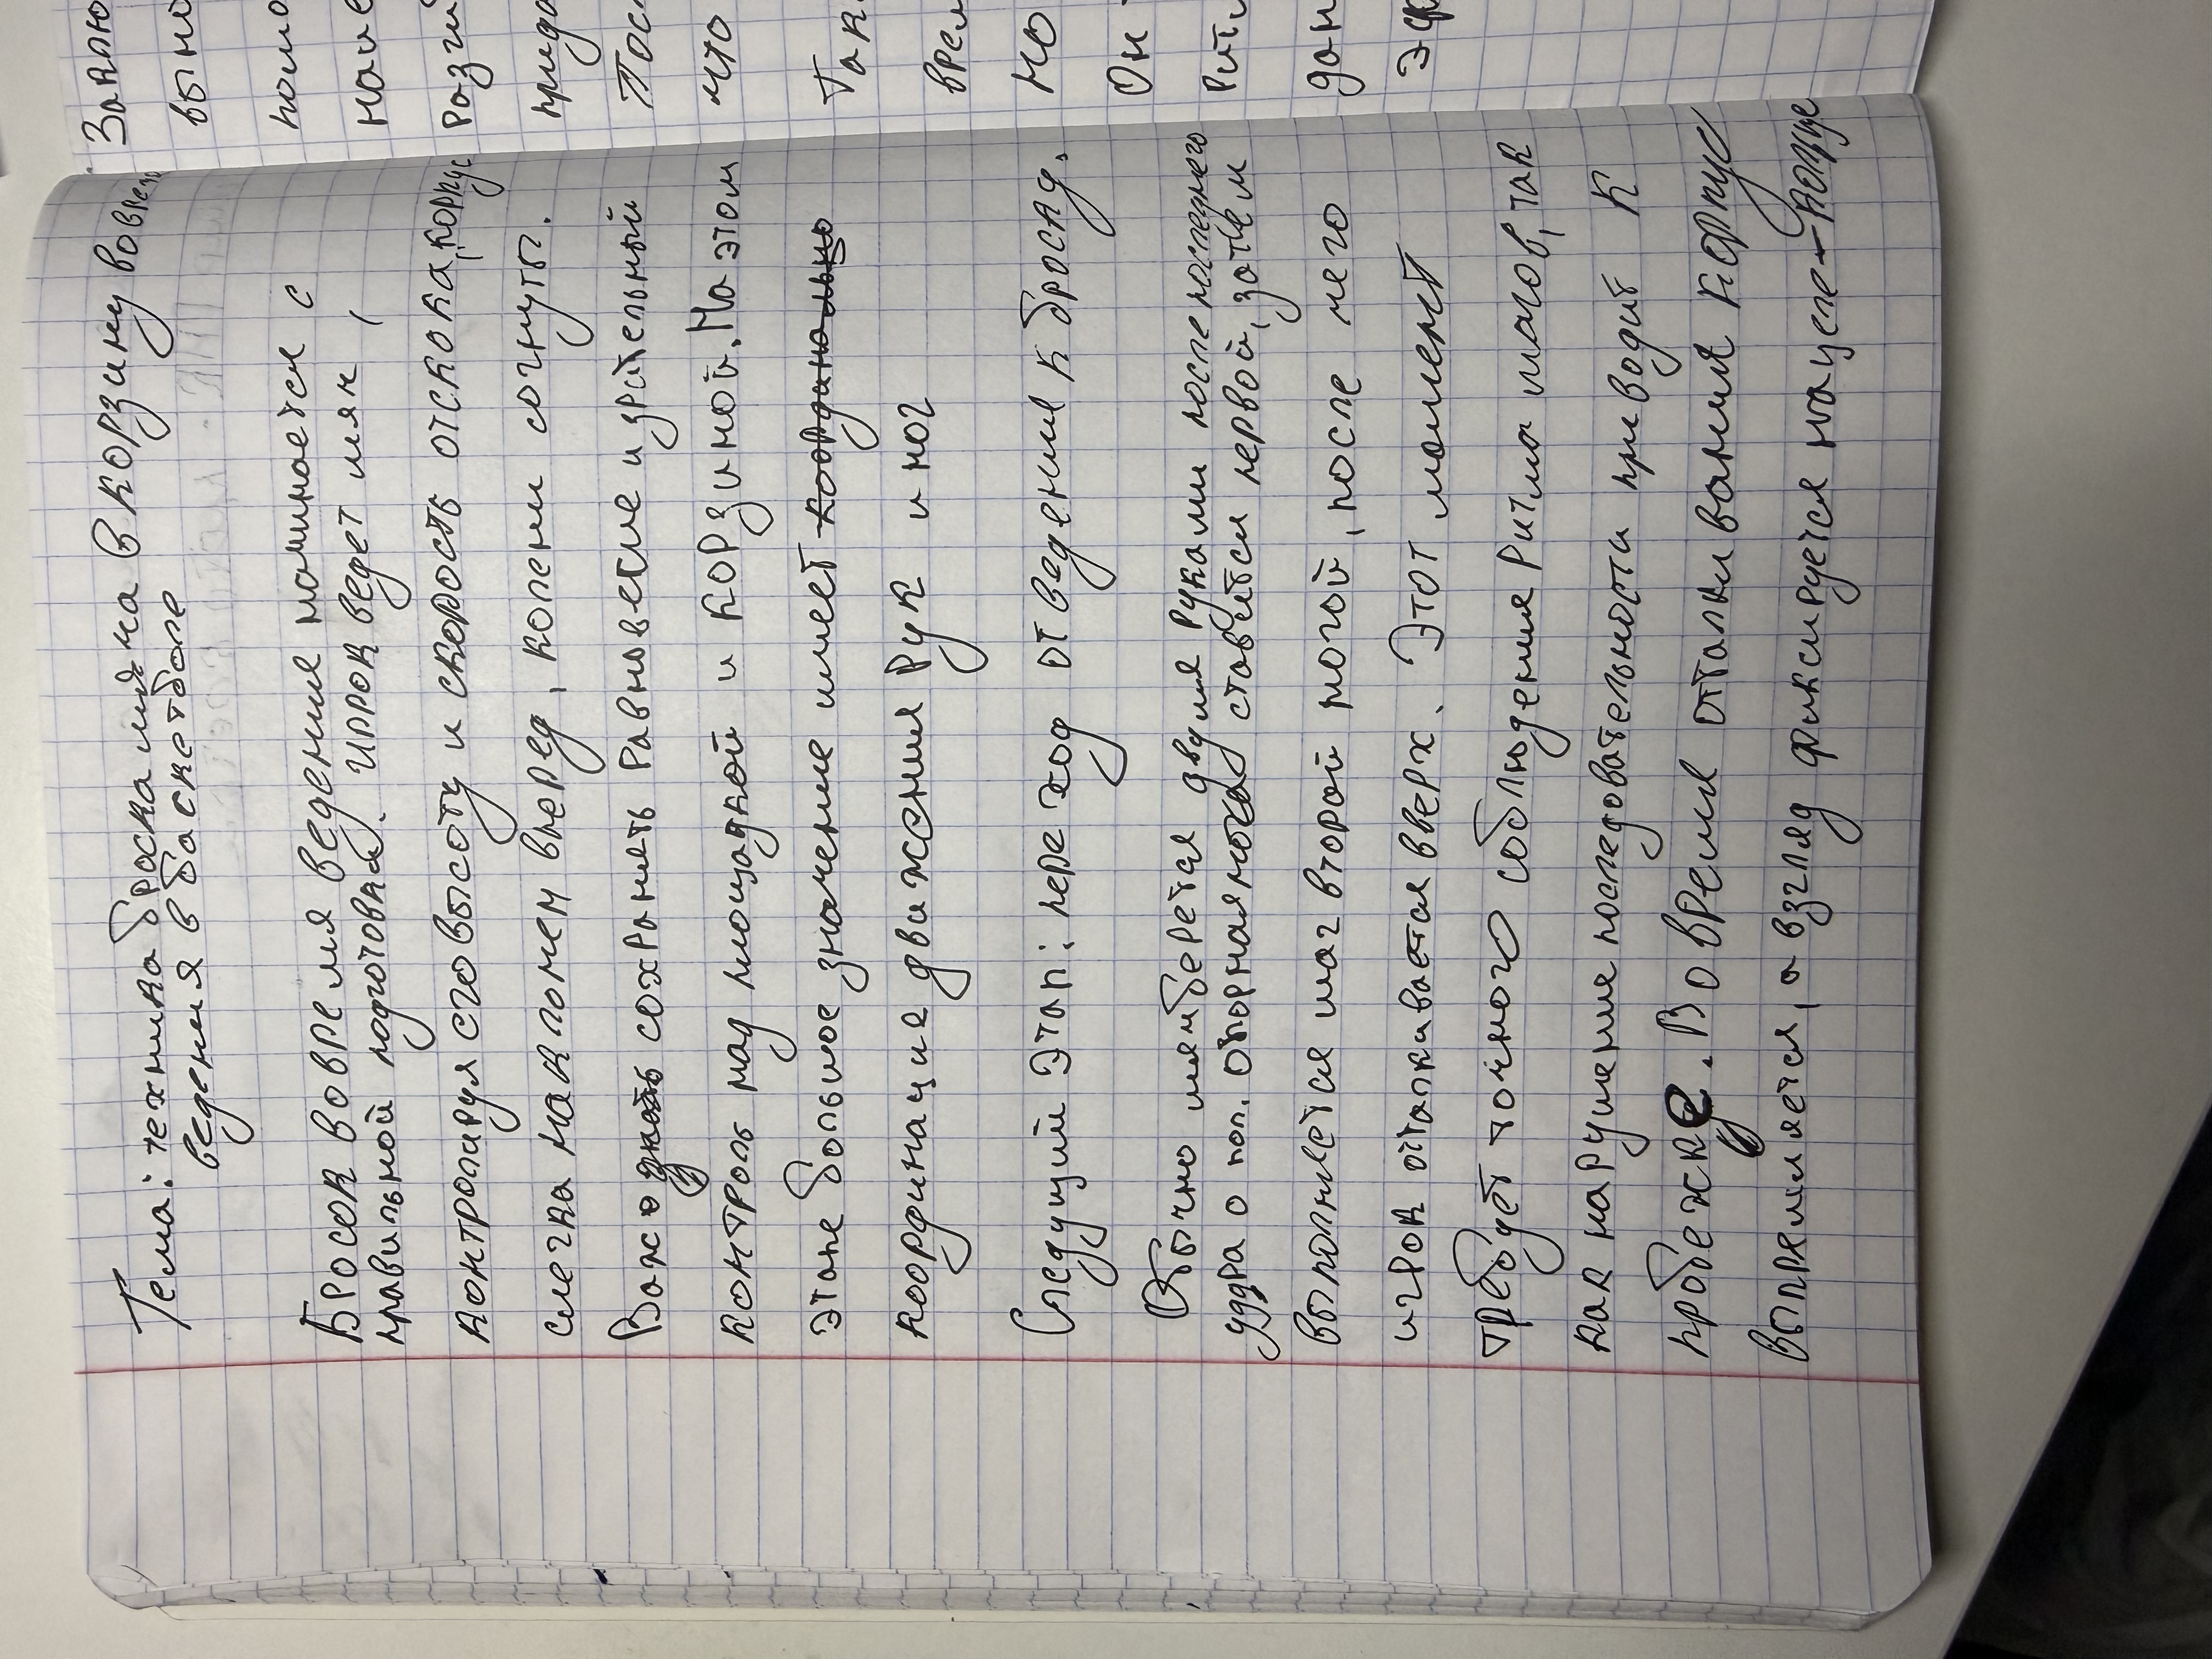 Тема: техника броска мяча в корзину вовремя
ведения в баскетболе
Бросок во время ведения начинается с
правильной подготовки. Игрок ведет мяч,
контролируя его высоту и скорость отскока, корпус
слегка наклонен вперед, колени согнуты.
Важно сохранять равновесие и зрительный
контроль над площадкой и корзиной. На этом
этапе большое значение имеет кордина льно
координация движения рук и ног
Следущий этап: переход от ведения к броску.
Обычно мяч берется двумя руками после последнего
удара о пол. Опорная нога ставится первой, затем
выполняется шаг второй ногой, после чего
игрок отталкивается вверх. Этот момент
требует точного соблюдения ритма шагов, так
как нарушение последовательности приводит к
пробежке. Во время отталкивания корпус
выпрямляется, а взгляд фиксируется на цели-кольце
Запю
выне
напо
разги
прида
Пос
что
Так
врем
но
Он
рити
дан